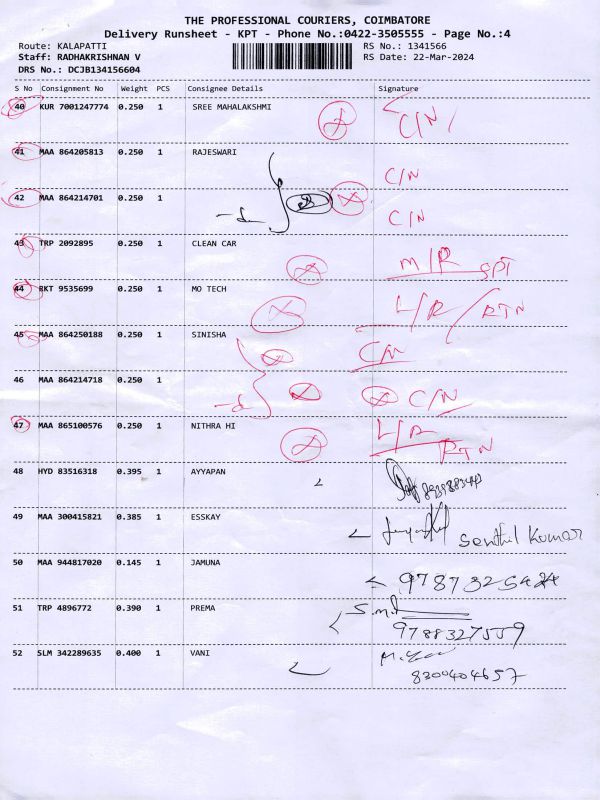 THE PROFESSIONAL COURIERS, COIMBATORE
Delivery Runsheet - KPT - Phone No.:0422-3505555 - Page No.:4
Route: KALAPATTI RS No.: 1341566
Staff: RADHAKRISHNAN V RS Date: 22-Mar-2024
DRS No.: DCJB134156604
S No Consignment No Weight PCS Consignee Details Signature
40 KUR 7001247774 0.250 1 SREE MAHALAKSHMI C/N
41 MAA 864205813 0.250 1 RAJESWARI C/N
42 MAA 864214701 0.250 1 C/N
43 TRP 2092895 0.250 1 CLEAN CAR M/R SPT
44 BKT 9535699 0.250 1 MO TECH L/R/RTN
45 MAA 864250188 0.250 1 SINISHA C/N
46 MAA 864214718 0.250 1 C/N
47 MAA 865100576 0.250 1 NITHRA HI L/R RTN
48 HYD 83516318 0.395 1 AYYAPAN
49 MAA 300415821 0.385 1 ESSKAY Senthil Kumar
50 MAA 944817020 0.145 1 JAMUNA
51 TRP 4896772 0.390 1 PREMA
9788327559
52 SLM 342289635 0.400 1 VANI
8300404657